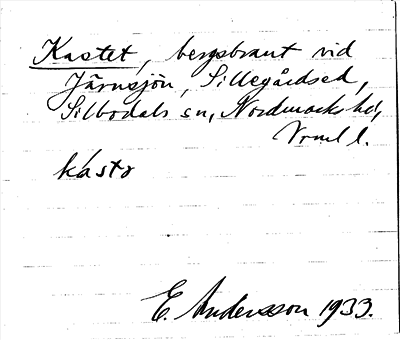 Kastet, bergsbrant vid
Järnsjön, Sillegårdsed,
Silbodals sn, Nordmarks hd,
Vrml l.
kástə
E. Andersson 1933.